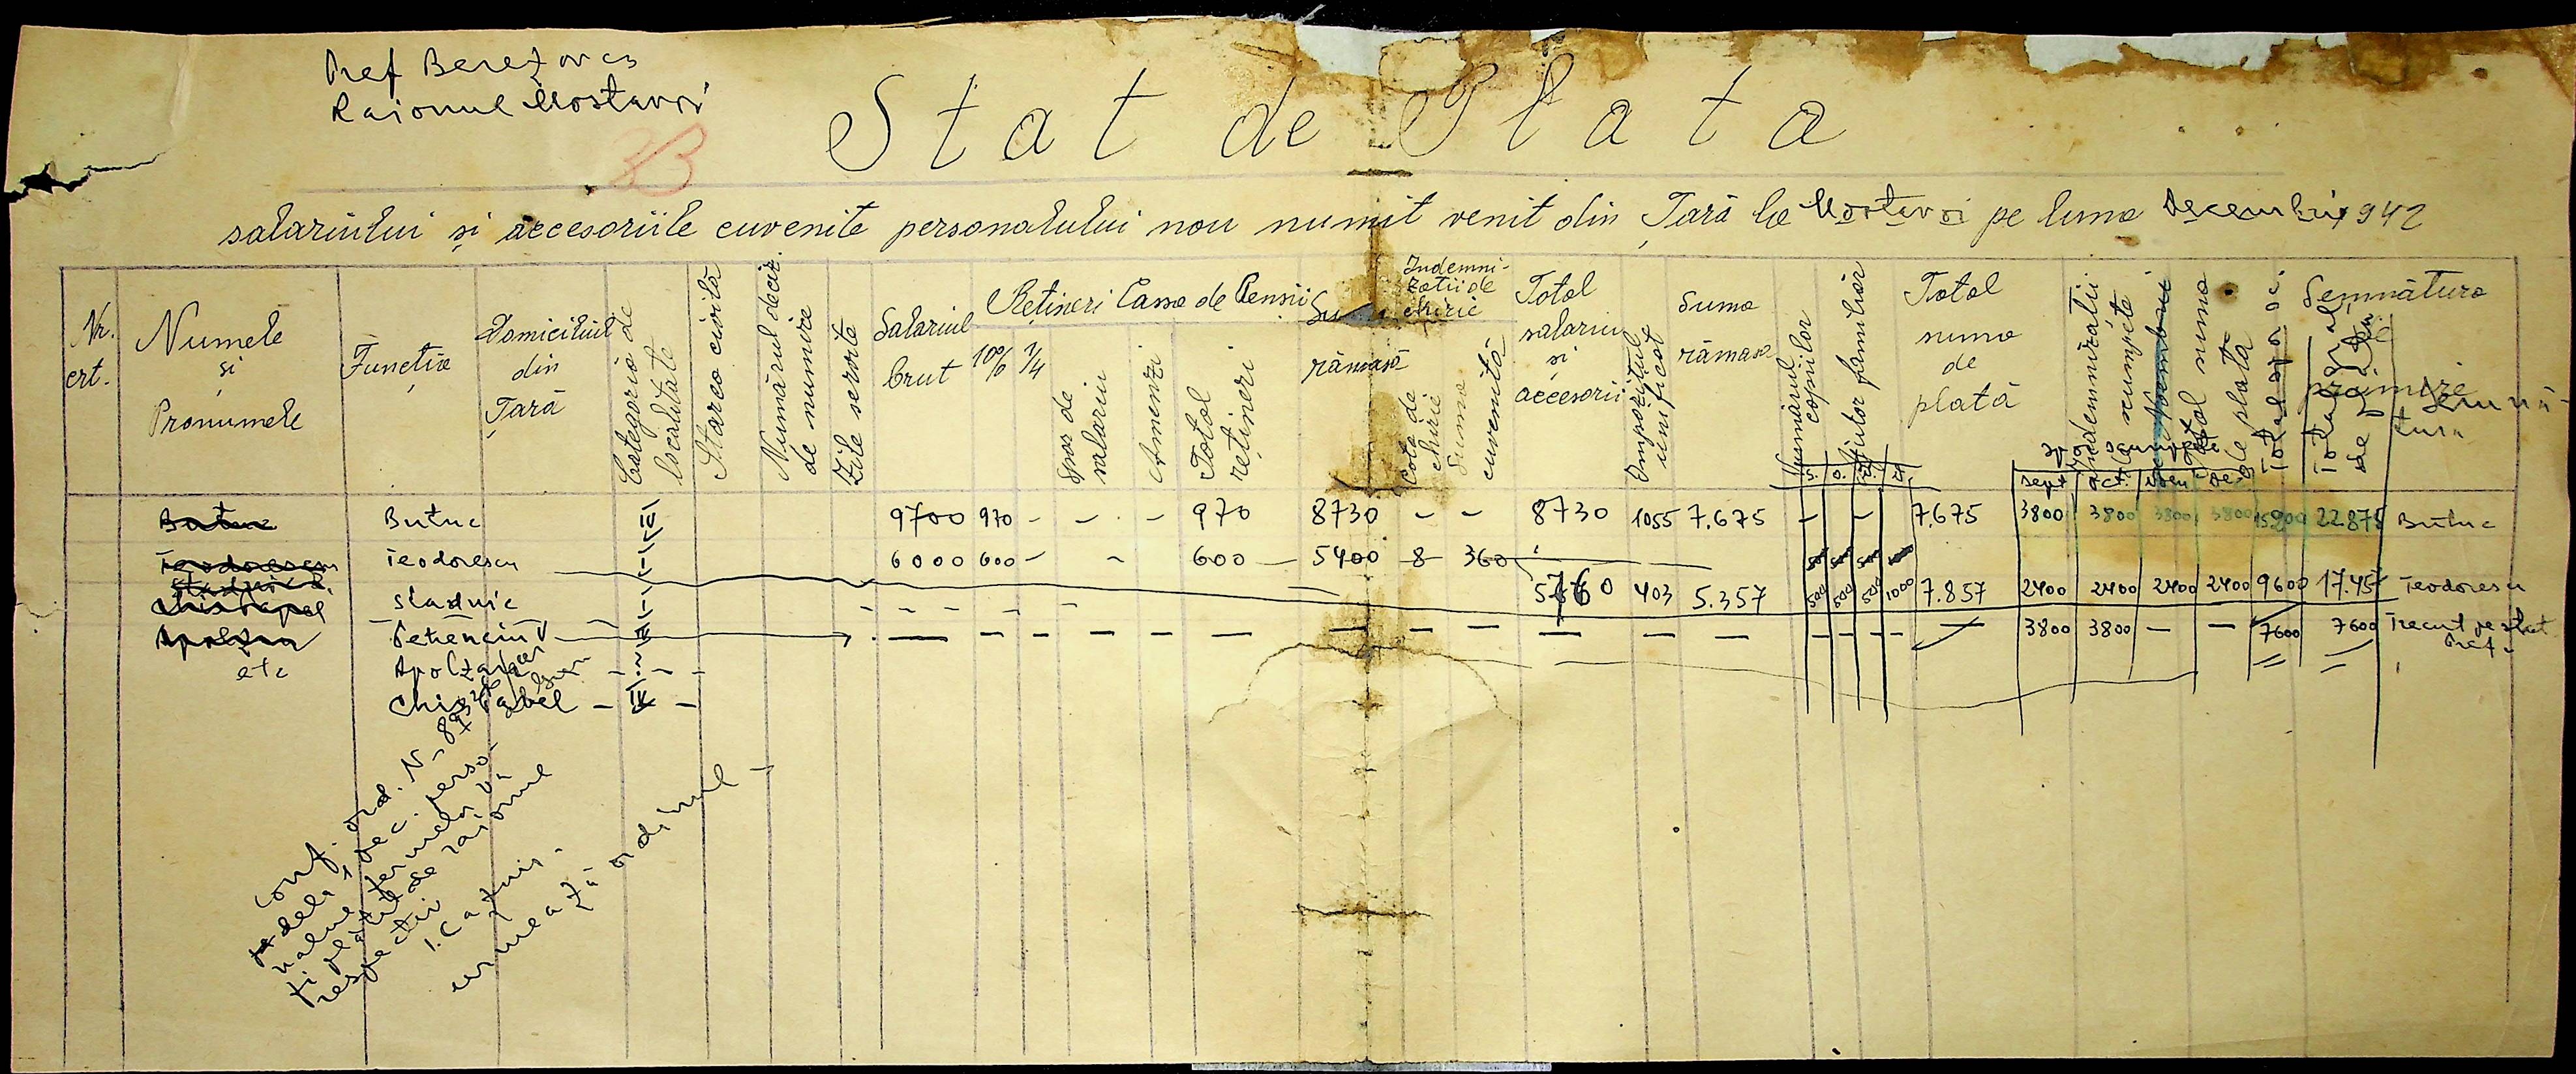 Pref Berezovca
Raionul Mostovoi
3B
Stat de Plata
salariului și accesoriile cuvenite personalului nou numit venit din Țară la Mostovoi pe luna Decembrie 1942
Nr. crt.
Numele și Pronumele
Functia
Domiciliul din Țară
Categoria de localitate
Starea civilă
Numărul deciz. de numire
Zile servite
Salariul brut
Rețineri Cassa de Pensii
10% 1/4 Spor de salariu Amenzi Total rețineri
rămasă
Indemnizatii de chirie
Cota de chirie Suma cuvenită
Total salariu și accesorii
Impozitul unificat
Suma rămasă
Numărul copiilor
Ajutor familiar
S. O. N. D.
Total suma de plată
Indemnizatii scumpete
Noembrie
Total suma de plată
sept oct. noem de
Total
Semnătura de primire
Semnătura
Butuc Butuc III 9700 970 - - - 970 8730 - - 8730 1055 7.675 - - 7.675 3800 3800 3800 3800 15200 22.875 Butuc
Teodorescu Teodorescu 6000 600 - - 600 5400 8 - 360
500 500 500 1000
5760 403 5.357 500 500 500 1000 7.857 2400 2400 2400 2400 9600 17.457 Teodorescu
Stadnic
Chis Pavel Stadnic - - - - -
Apolzan - - - - - - - - - - - 3800 3800 - - 7600 7600 Trecut pe stat Pref.
etc Apolzan - - -
Chis Pavel - IV -
conf. ord. N- 89
dela 1 Dec. perso-
nalul extern veți
fi plătit de raionul
respectiv
urmează ordinul -